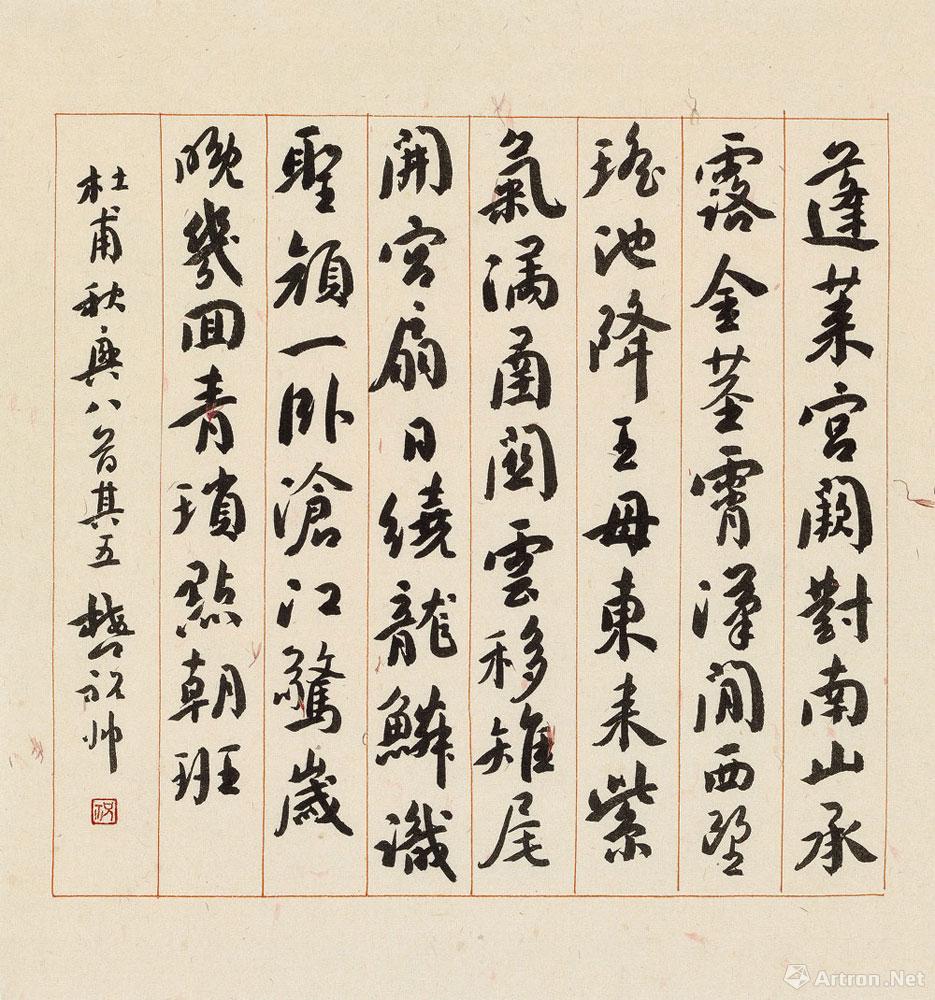 蓬萊宮闕對南山承
露金莖霄漢間西望
瑤池降王母東来紫
氣滿函關雲移雉尾
開宮扇日繞龍鱗識
聖顏一卧滄江驚歲
晚幾回青瑣點朝班
杜甫秋興八首其五 祝帅
Artron.Net